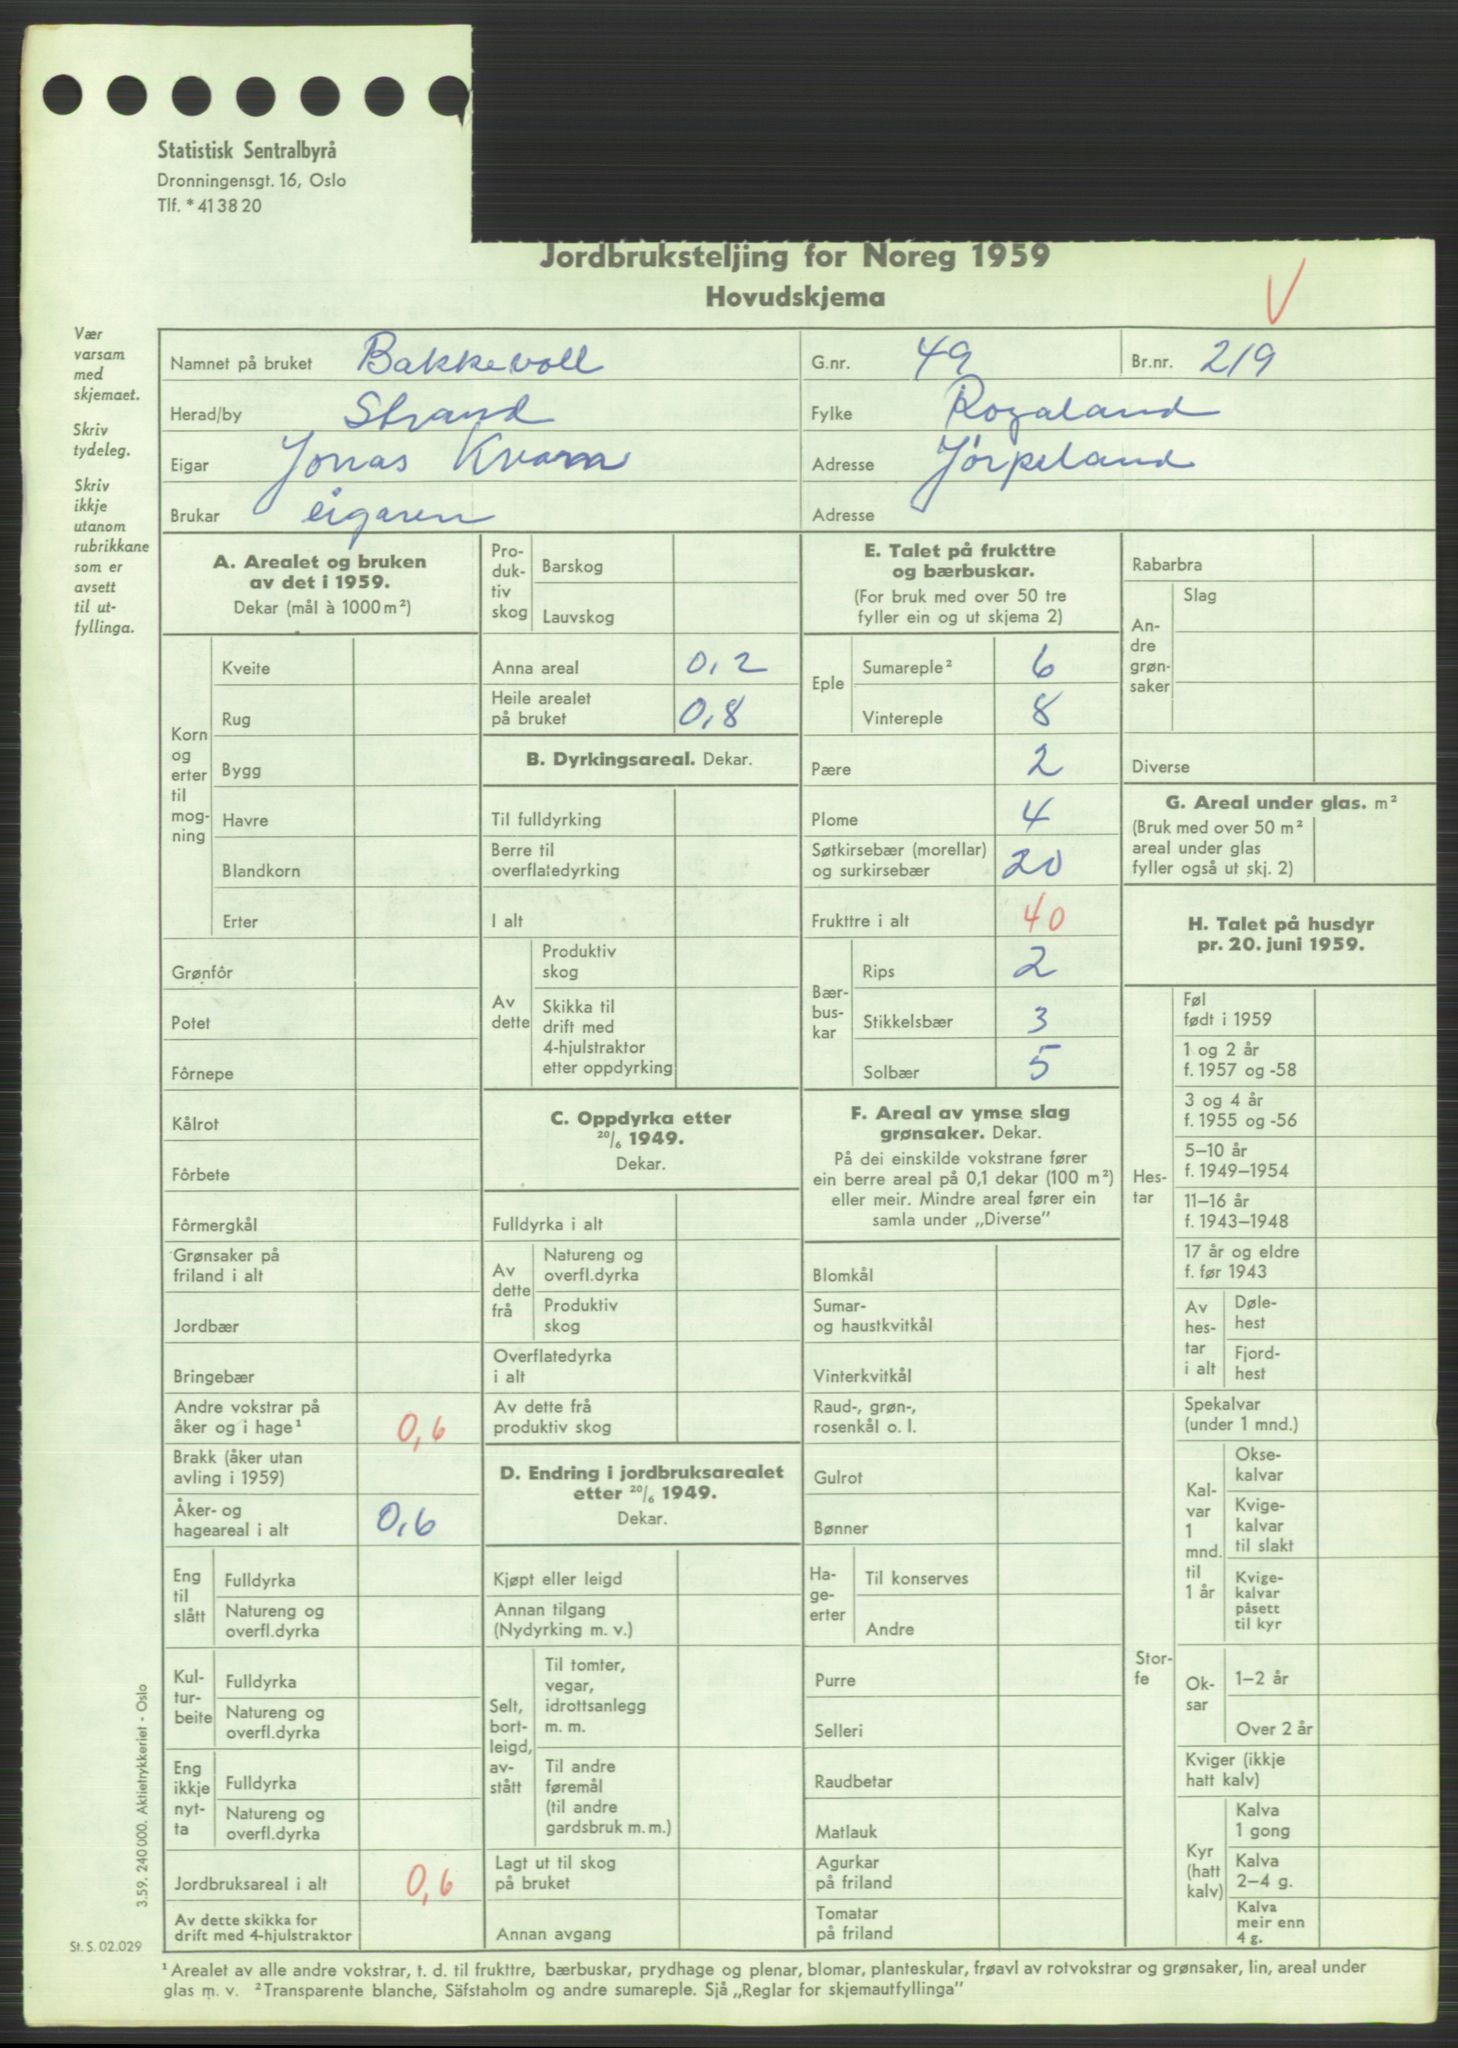 Statistisk Sentralbyrå
Dronningensgt. 16, Oslo
Tlf. * 41 38 20
Jordbruksteljing for Noreg 1959
Hovudskjema
V
Vær
varsam
med
skjemaet.
Skriv
tydeleg.
Skriv
ikkje
utanom
rubrikkane
som er
avsett
til ut-
fyllinga.
Namnet på bruket Bakkevoll
G.nr. 49
Br.nr. 219
Herad/by Strand
Fylke Rogaland
Eigar Jonas Kvam
Adresse Jørpeland
Brukar eigaren
Adresse
A. Arealet og bruken
av det i 1959.
Dekar (mål à 1000 m²)
Korn
og
erter
til
mog-
ning
Kveite
Rug
Bygg
Havre
Blandkorn
Erter
Grønfôr
Potet
Fôrnepe
Kålrot
Fôrbete
Fôrmergkål
Grønsaker på
friland i alt
Jordbær
Bringebær
Andre vokstrar på
åker og i hage¹ 0,6
Brakk (åker utan
avling i 1959)
Åker- og
hageareal i alt 0,6
Eng
til
slått
Fulldyrka
Natureng og
overfl.dyrka
Kul-
tur-
beite
Fulldyrka
Natureng og
overfl.dyrka
Eng
ikkje
nyt-
ta
Fulldyrka
Natureng og
overfl.dyrka
Jordbruksareal i alt 0,6
Av dette skikka for
drift med 4-hjulstraktor
Pro-
duk-
tiv
skog
Barskog
Lauvskog
Anna areal 0,2
Heile arealet
på bruket 0,8
B. Dyrkingsareal. Dekar.
Til fulldyrking
Berre til
overflatedyrking
I alt
Av
dette
Produktiv
skog
Skikka til
drift med
4-hjulstraktor
etter oppdyrking
C. Oppdyrka etter
20/6 1949.
Dekar.
Fulldyrka i alt
Av
dette
frå
Natureng og
overfl.dyrka
Produktiv
skog
Overflatedyrka
i alt
Av dette frå
produktiv skog
D. Endring i jordbruksarealet
etter 20/6 1949.
Dekar.
Kjøpt eller leigd
Annan tilgang
(Nydyrking m. v.)
Selt,
bort-
leigd,
av-
stått
Til tomter,
vegar,
idrottsanlegg
m. m.
Til andre
føremål
(til andre
gardsbruk m. m.)
Lagt ut til skog
på bruket
Annan avgang
E. Talet på frukttre
og bærbuskar.
(For bruk med over 50 tre
fyller ein og ut skjema 2)
Eple
Sumareple² 6
Vintereple 8
Pære 2
Plome 4
Søtkirsebær (morellar)
og surkirsebær 20
Frukttre i alt 40
Bær-
bus-
kar
Rips 2
Stikkelsbær 3
Solbær 5
F. Areal av ymse slag
grønsaker. Dekar.
På dei einskilde vokstrane fører
ein berre areal på 0,1 dekar (100 m²)
eller meir. Mindre areal fører ein
samla under „Diverse”
Blomkål
Sumar-
og haustkvitkål
Vinterkvitkål
Raud-, grøn-,
rosenkål o. l.
Gulrot
Bønner
Ha-
ge-
erter
Til konserves
Andre
Purre
Selleri
Raudbetar
Matlauk
Agurkar
på friland
Tomatar
på friland
Rabarbra
An-
dre
grøn-
saker
Slag
Diverse
G. Areal under glas. m²
(Bruk med over 50 m²
areal under glas
fyller også ut skj. 2)
H. Talet på husdyr
pr. 20. juni 1959.
Hes-
tar
Føl
født i 1959
1 og 2 år
f. 1957 og -58
3 og 4 år
f. 1955 og -56
5–10 år
f. 1949–1954
11–16 år
f. 1943–1948
17 år og eldre
f. før 1943
Av
hes-
tar
i alt
Døle-
hest
Fjord-
hest
Stor-
fe
Spekalvar
(under 1 mnd.)
Kal-
var
1
mnd.
til
1 år
Okse-
kalvar
Kvige-
kalvar
til slakt
Kvige-
kalvar
påsett
til kyr
Ok-
sar
1–2 år
Over 2 år
Kviger (ikkje
hatt kalv)
Kyr
(hatt
kalv)
Kalva
1 gong
Kalva
2–4 g.
Kalva
meir enn
4 g.
3.59. 240 000. Aktietrykkeriet - Oslo
St. S. 02.029
¹ Arealet av alle andre vokstrar, t. d. til frukttre, bærbuskar, prydhage og plenar, blomar, planteskular, frøavl av rotvokstrar og grønsaker, lin, areal under
glas m. v. ² Transparente blanche, Säfstaholm og andre sumareple. Sjå „Reglar for skjemautfyllinga”